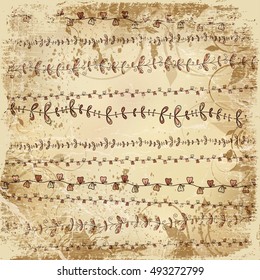 shutterstock.com · 493272799